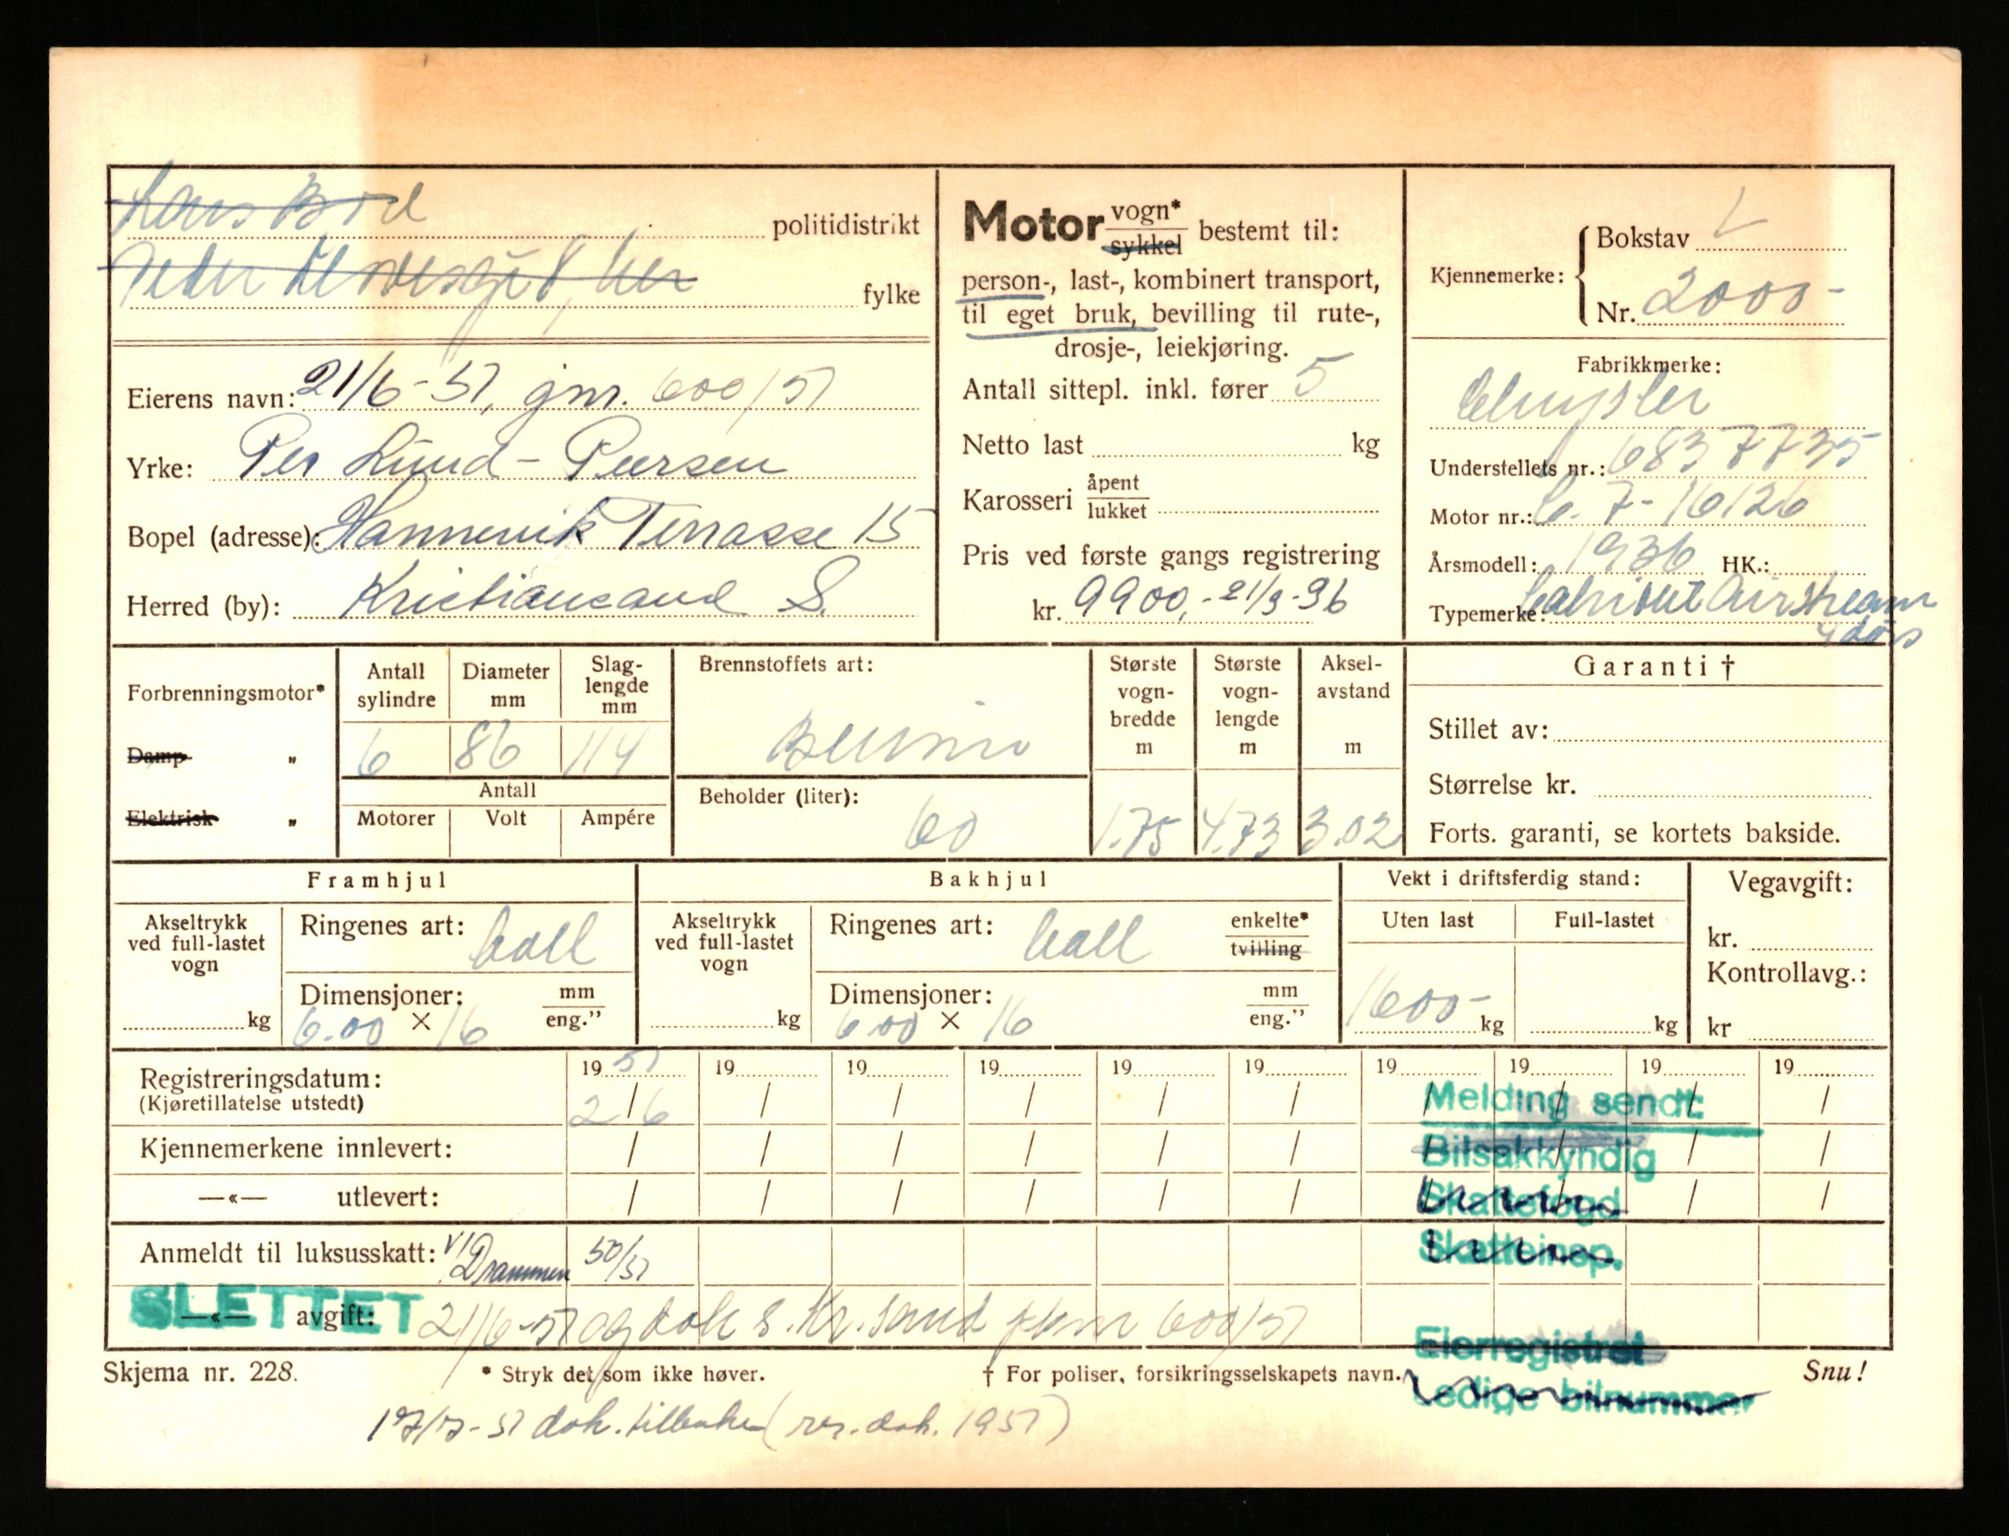 Lars Brød
politidistrikt
fylke
Eierens navn: 21/6-51, jnr. 600/51
Yrke: Per Lund-Peersen
Bopel (adresse): Hannevik Terrasse 15
Herred (by): Kristiansand S.
Motor vogn* sykkel bestemt til:
person-, last-, kombinert transport,
til eget bruk, bevilling til rute-,
drosje-, leiekjøring.
Antall sittepl. inkl. fører 5
Netto last kg
Karosseri åpent lukket
Pris ved første gangs registrering
kr. 9900,- 21/9-36
Kjennemerke: Bokstav L
Nr. 2000-
Fabrikkmerke:
Chrysler
Understellets nr.: 6837735
Motor nr.: C. 7-16126
Årsmodell: 1936 HK.:
Typemerke: Cabriolet Airstream
4 dørs
Forbrenningsmotor*
Damp "
Elektrisk "
Antall sylindre Diameter mm Slag-lengde mm
6 86 114
Antall
Motorer Volt Ampére
Brennstoffets art:
Bensin
Beholder (liter):
60
Største vogn-bredde m
1.75
Største vogn-lengde m
4.73
Aksel-avstand m
3.02
Garanti †
Stillet av:
Størrelse kr.
Forts. garanti, se kortets bakside.
Framhjul
Akseltrykk ved full-lastet vogn
kg
Ringenes art: ball
Dimensjoner: mm eng."
6.00 × 16
Bakhjul
Akseltrykk ved full-lastet vogn
kg
Ringenes art: ball enkelte* tvilling
Dimensjoner: mm eng."
6.00 × 16
Vekt i driftsferdig stand:
Uten last Full-lastet
1600- kg kg
Vegavgift:
kr.
Kontrollavg.:
kr
Registreringsdatum: 19 51 19 19 19 19 19 19 19 19 19
(Kjøretillatelse utstedt) 2/6 / / / / / / / / /
Kjennemerkene innlevert: / / / / / / / / / /
—«— utlevert: / / / / / / / / / /
Melding sendt:
Bilsakkyndig
Skattefogd
Skatteinsp.
Anmeldt til luksusskatt: v/Drammen 50/51
SLETTET
—«— avgift: 21/6-51 og dok s. Kr.sand pkm 600/51
Eierregistret
Ledige bilnummer
Skjema nr. 228.
* Stryk det som ikke høver.
† For poliser, forsikringsselskapets navn.
Snu!
17/7-51 dok. tilbake (res. dok. 1951)